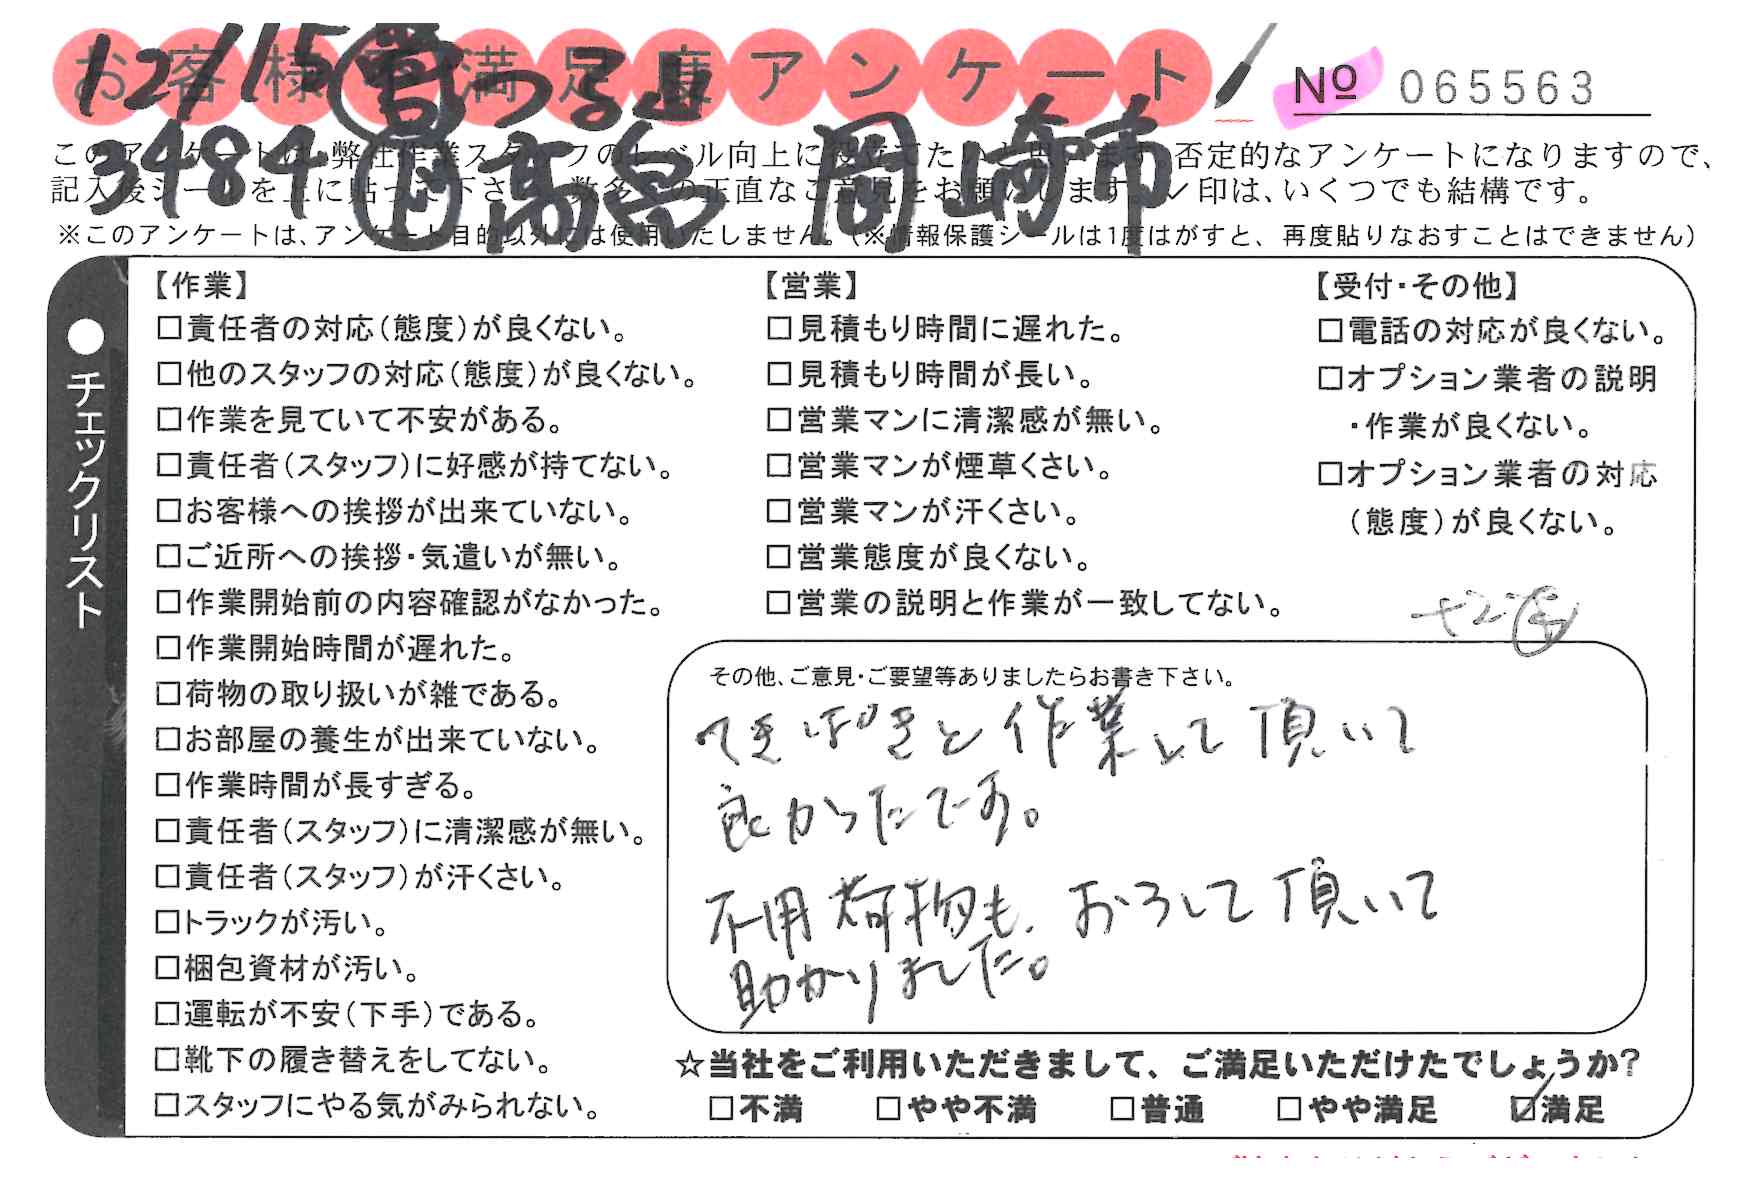 お客様満足度アンケート
№ 065563
12/15 営 つる
3484 高畠 岡崎市
このアンケートは、弊社作業スタッフのレベル向上に役立てたいと思います。否定的なアンケートになりますので、
記入後シールを上に貼って下さい。数多くの正直なご意見をお願いします。✓印は、いくつでも結構です。
※このアンケートは、アンケート目的以外には使用いたしません。（※情報保護シールは1度はがすと、再度貼りなおすことはできません）
●チェックリスト
【作業】
□責任者の対応（態度）が良くない。
□他のスタッフの対応（態度）が良くない。
□作業を見ていて不安がある。
□責任者（スタッフ）に好感が持てない。
□お客様への挨拶が出来ていない。
□ご近所への挨拶・気遣いが無い。
□作業開始前の内容確認がなかった。
□作業開始時間が遅れた。
□荷物の取り扱いが雑である。
□お部屋の養生が出来ていない。
□作業時間が長すぎる。
□責任者（スタッフ）に清潔感が無い。
□責任者（スタッフ）が汗くさい。
□トラックが汚い。
□梱包資材が汚い。
□運転が不安（下手）である。
□靴下の履き替えをしてない。
□スタッフにやる気がみられない。
【営業】
□見積もり時間に遅れた。
□見積もり時間が長い。
□営業マンに清潔感が無い。
□営業マンが煙草くさい。
□営業マンが汗くさい。
□営業態度が良くない。
□営業の説明と作業が一致してない。
【受付・その他】
□電話の対応が良くない。
□オプション業者の説明
・作業が良くない。
□オプション業者の対応
（態度）が良くない。
その他、ご意見・ご要望等ありましたらお書き下さい。
てきぱきと作業して頂いて
良かったです。
不用荷物も、おろして頂いて
助かりました。
☆当社をご利用いただきまして、ご満足いただけたでしょうか？
□不満 □やや不満 □普通 □やや満足 ☑満足